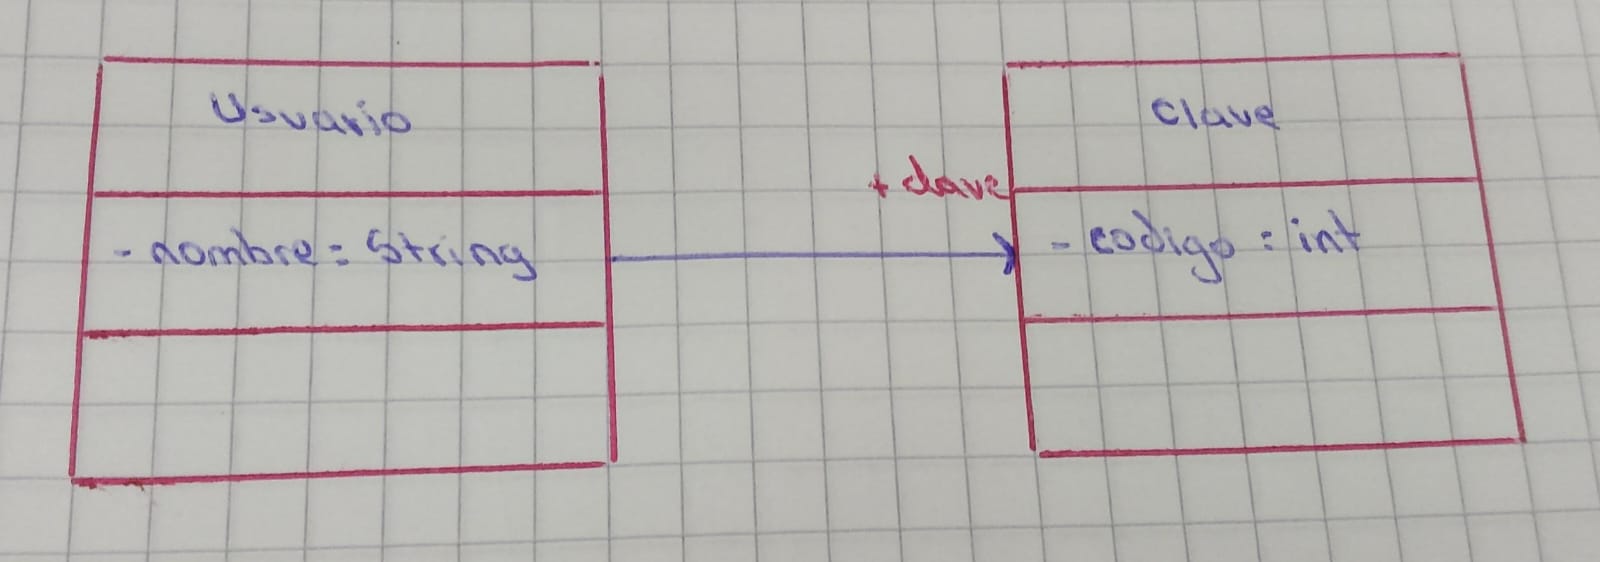 Usuario
- nombre : String
+ clave
Clave
- codigo : int